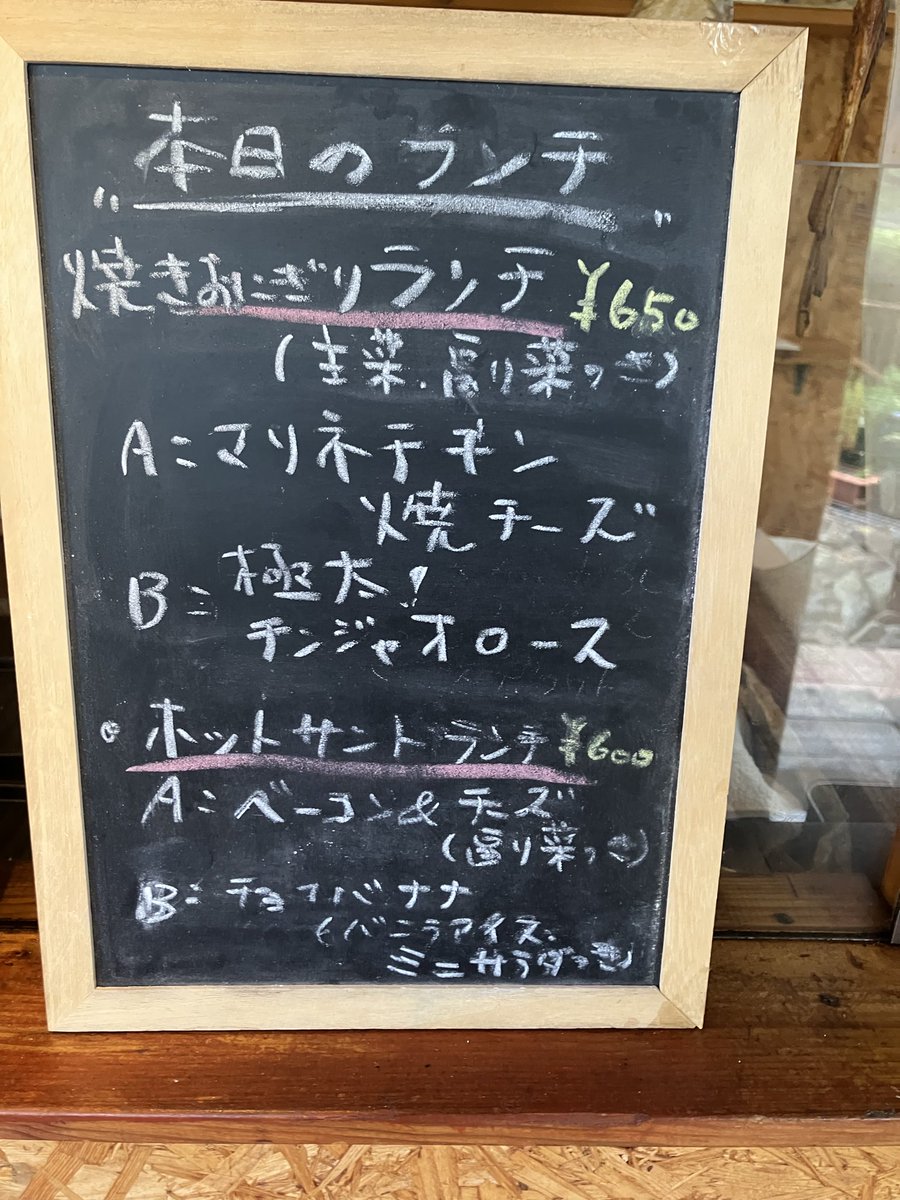 本日のランチ
"　　　"
焼きおにぎりランチ ¥650
(主菜.副菜つき)
A:マリネチキン
焼チーズ
B:極太!
チンジャオロース
。ホットサンドランチ ¥600
A:ベーコン&チーズ
(副菜つき)
B:チョコバナナ
(バニラアイス、
ミニサラダつき)